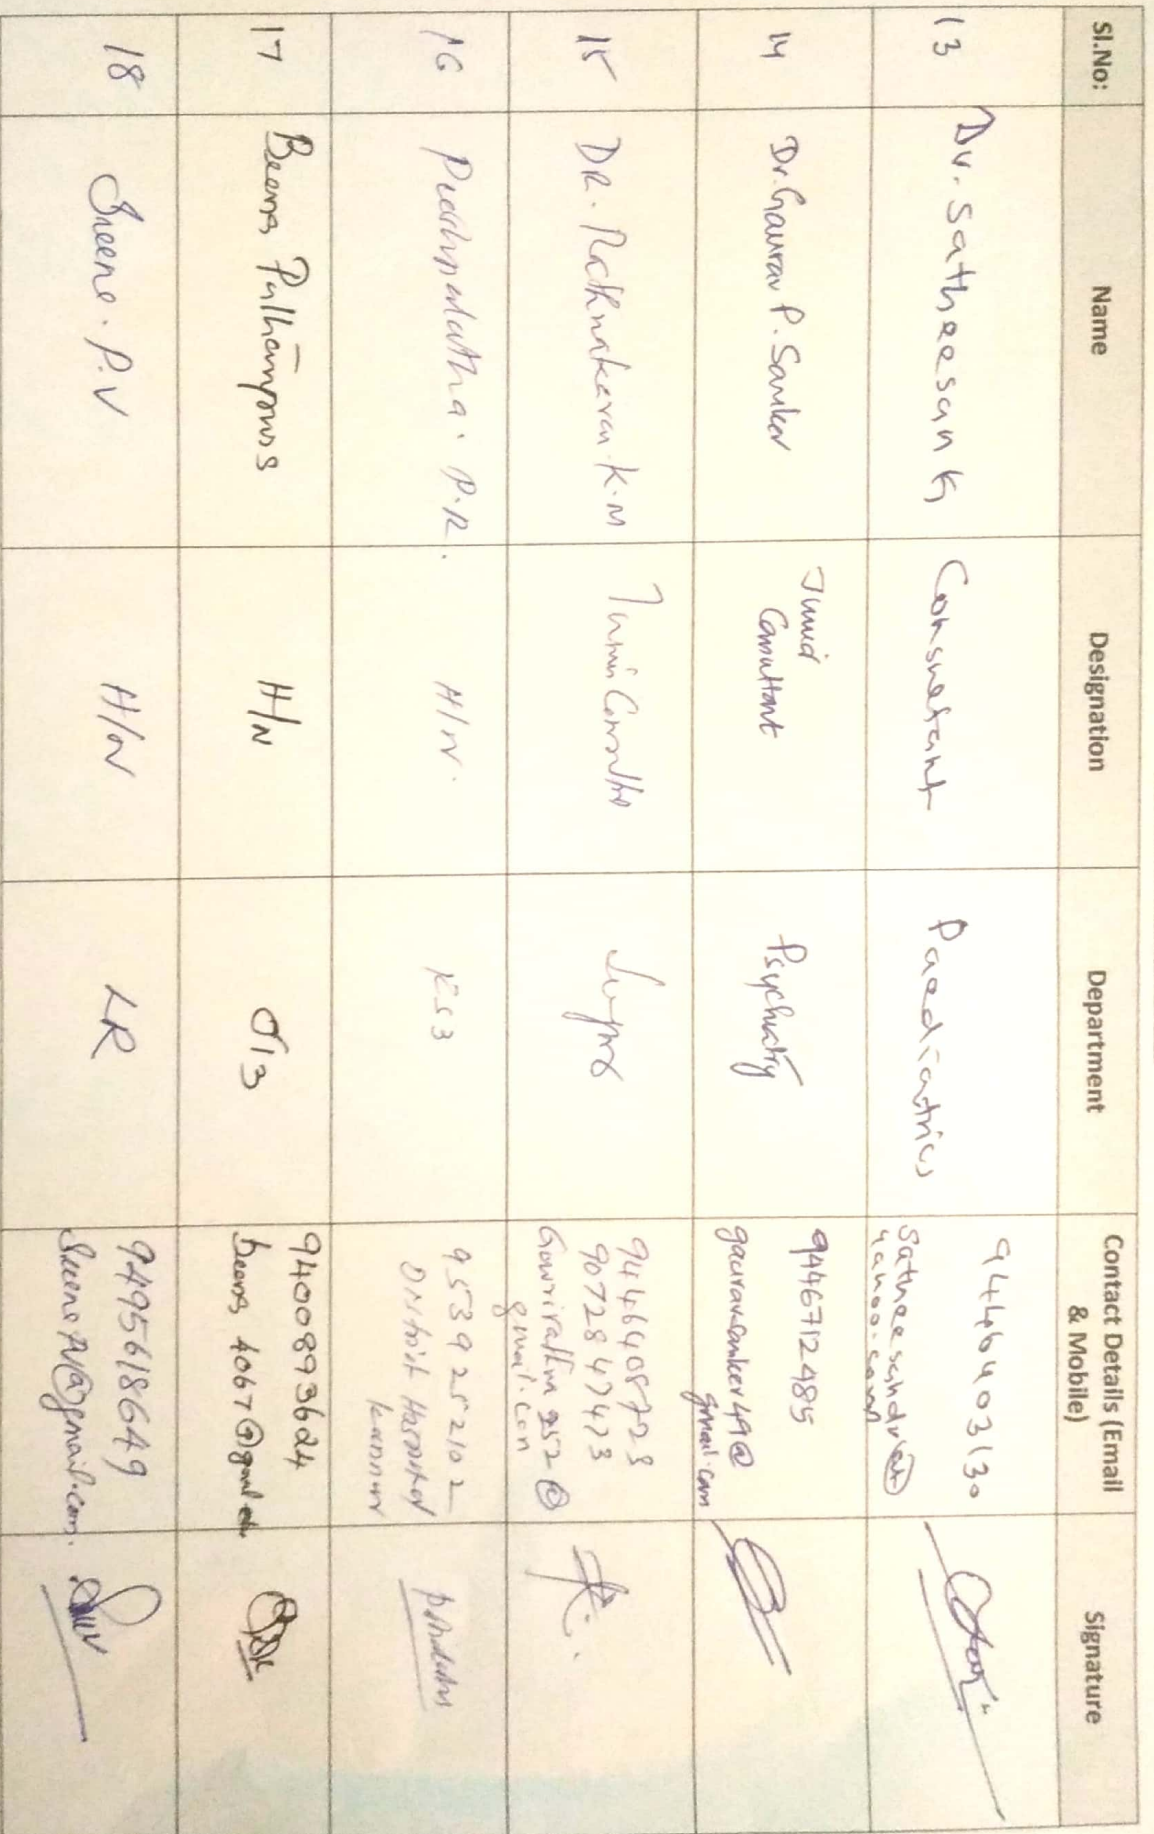 Sl.No: Name Designation Department Contact Details (Email & Mobile) Signature
13 Dr. Satheesan K Consultant Paediatrics 9446040313
satheesandr@
yahoo.com
14 Dr. Gaurav P. Sanker Junior Consultant Psychiatry 9446712485
gauravsanker49@
gmail.com
15 DR. Rathnakaran K.M Junior Consultant
9072847473
gmail.com
16 P.R. H/N.
9539252102
District Hospital
Kannur
17 Beena H/N 9400893624
beena4067@gmail
18 Sreena. P.V H/N LR 9495618649
SreenaPV@gmail.com.